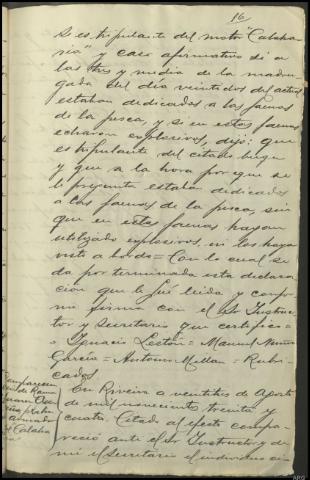 16
Si es tripulante del motor "Calaha-
ria" y caso afirmativo si a
las tres y media de la madru-
gada del día veintidos del actual
estaban dedicados a las faenas
de la pesca, y si en estas faenas
echaron explosivos, dijo: que
es tripulante del citado buque
y que a la hora por que se
le pregunta estaban dedicados
a las faenas de la pesca, sin
que en estas faenas hayan
utilizado explosivos, ni los haya
visto a bordo = Con lo cual se
da por terminada esta declara-
ción que le fué leida y confor-
me firma con el Sr Instruc-
tor y Secretario que certifico =
= Ignacio Lestón = Manuel Nuñez
García = Antonio Millan = Rubri-
cados
En Riveira a veintitres de Agosto
de mil novecientos treinta y
cuatro. Citado al efecto compa-
reció ante el Sr Instructor y de
mi el Secretario el individuo
Comparecen
armador